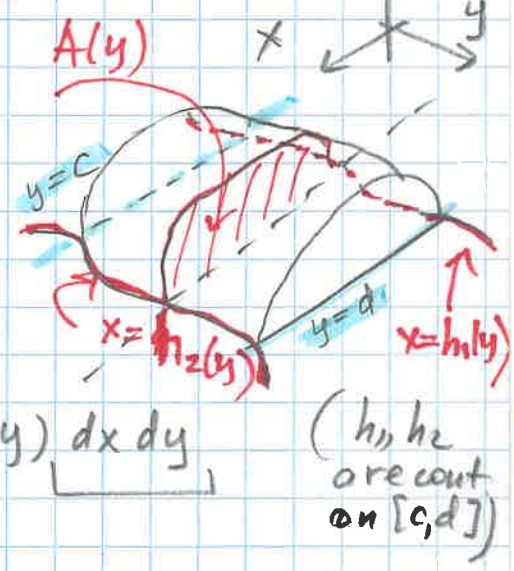 A(y)
x
y
y=c
y=d
x=h₂(y)
x=h₁(y)
y) dx dy
(h₁, h₂
are cont
on [c,d])